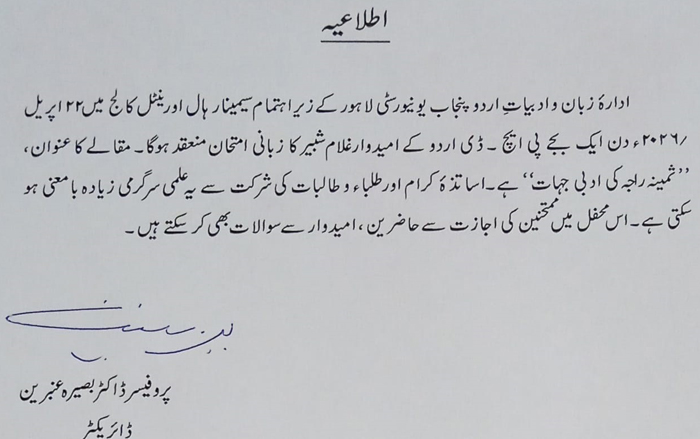 اطلاعیہ
ادارۂ زبان و ادبیاتِ اردو پنجاب یونیورسٹی لاہور کے زیرِ اہتمام سیمینار ہال اورینٹل کالج میں ۲۲ اپریل
۲۰۲۶ء دن ایک بجے پی ایچ۔ ڈی اردو کے امیدوار غلام شبیر کا زبانی امتحان منعقد ہوگا۔ مقالے کا عنوان،
’’ثمینہ راجہ کی ادبی جہات‘‘ ہے۔ اساتذۂ کرام اور طلباء و طالبات کی شرکت سے یہ علمی سرگرمی زیادہ بامعنی ہو
سکتی ہے۔ اس محفل میں ممتحنین کی اجازت سے حاضرین، امیدوار سے سوالات بھی کر سکتے ہیں۔
پروفیسر ڈاکٹر بصیرہ عنبرین
ڈائریکٹر